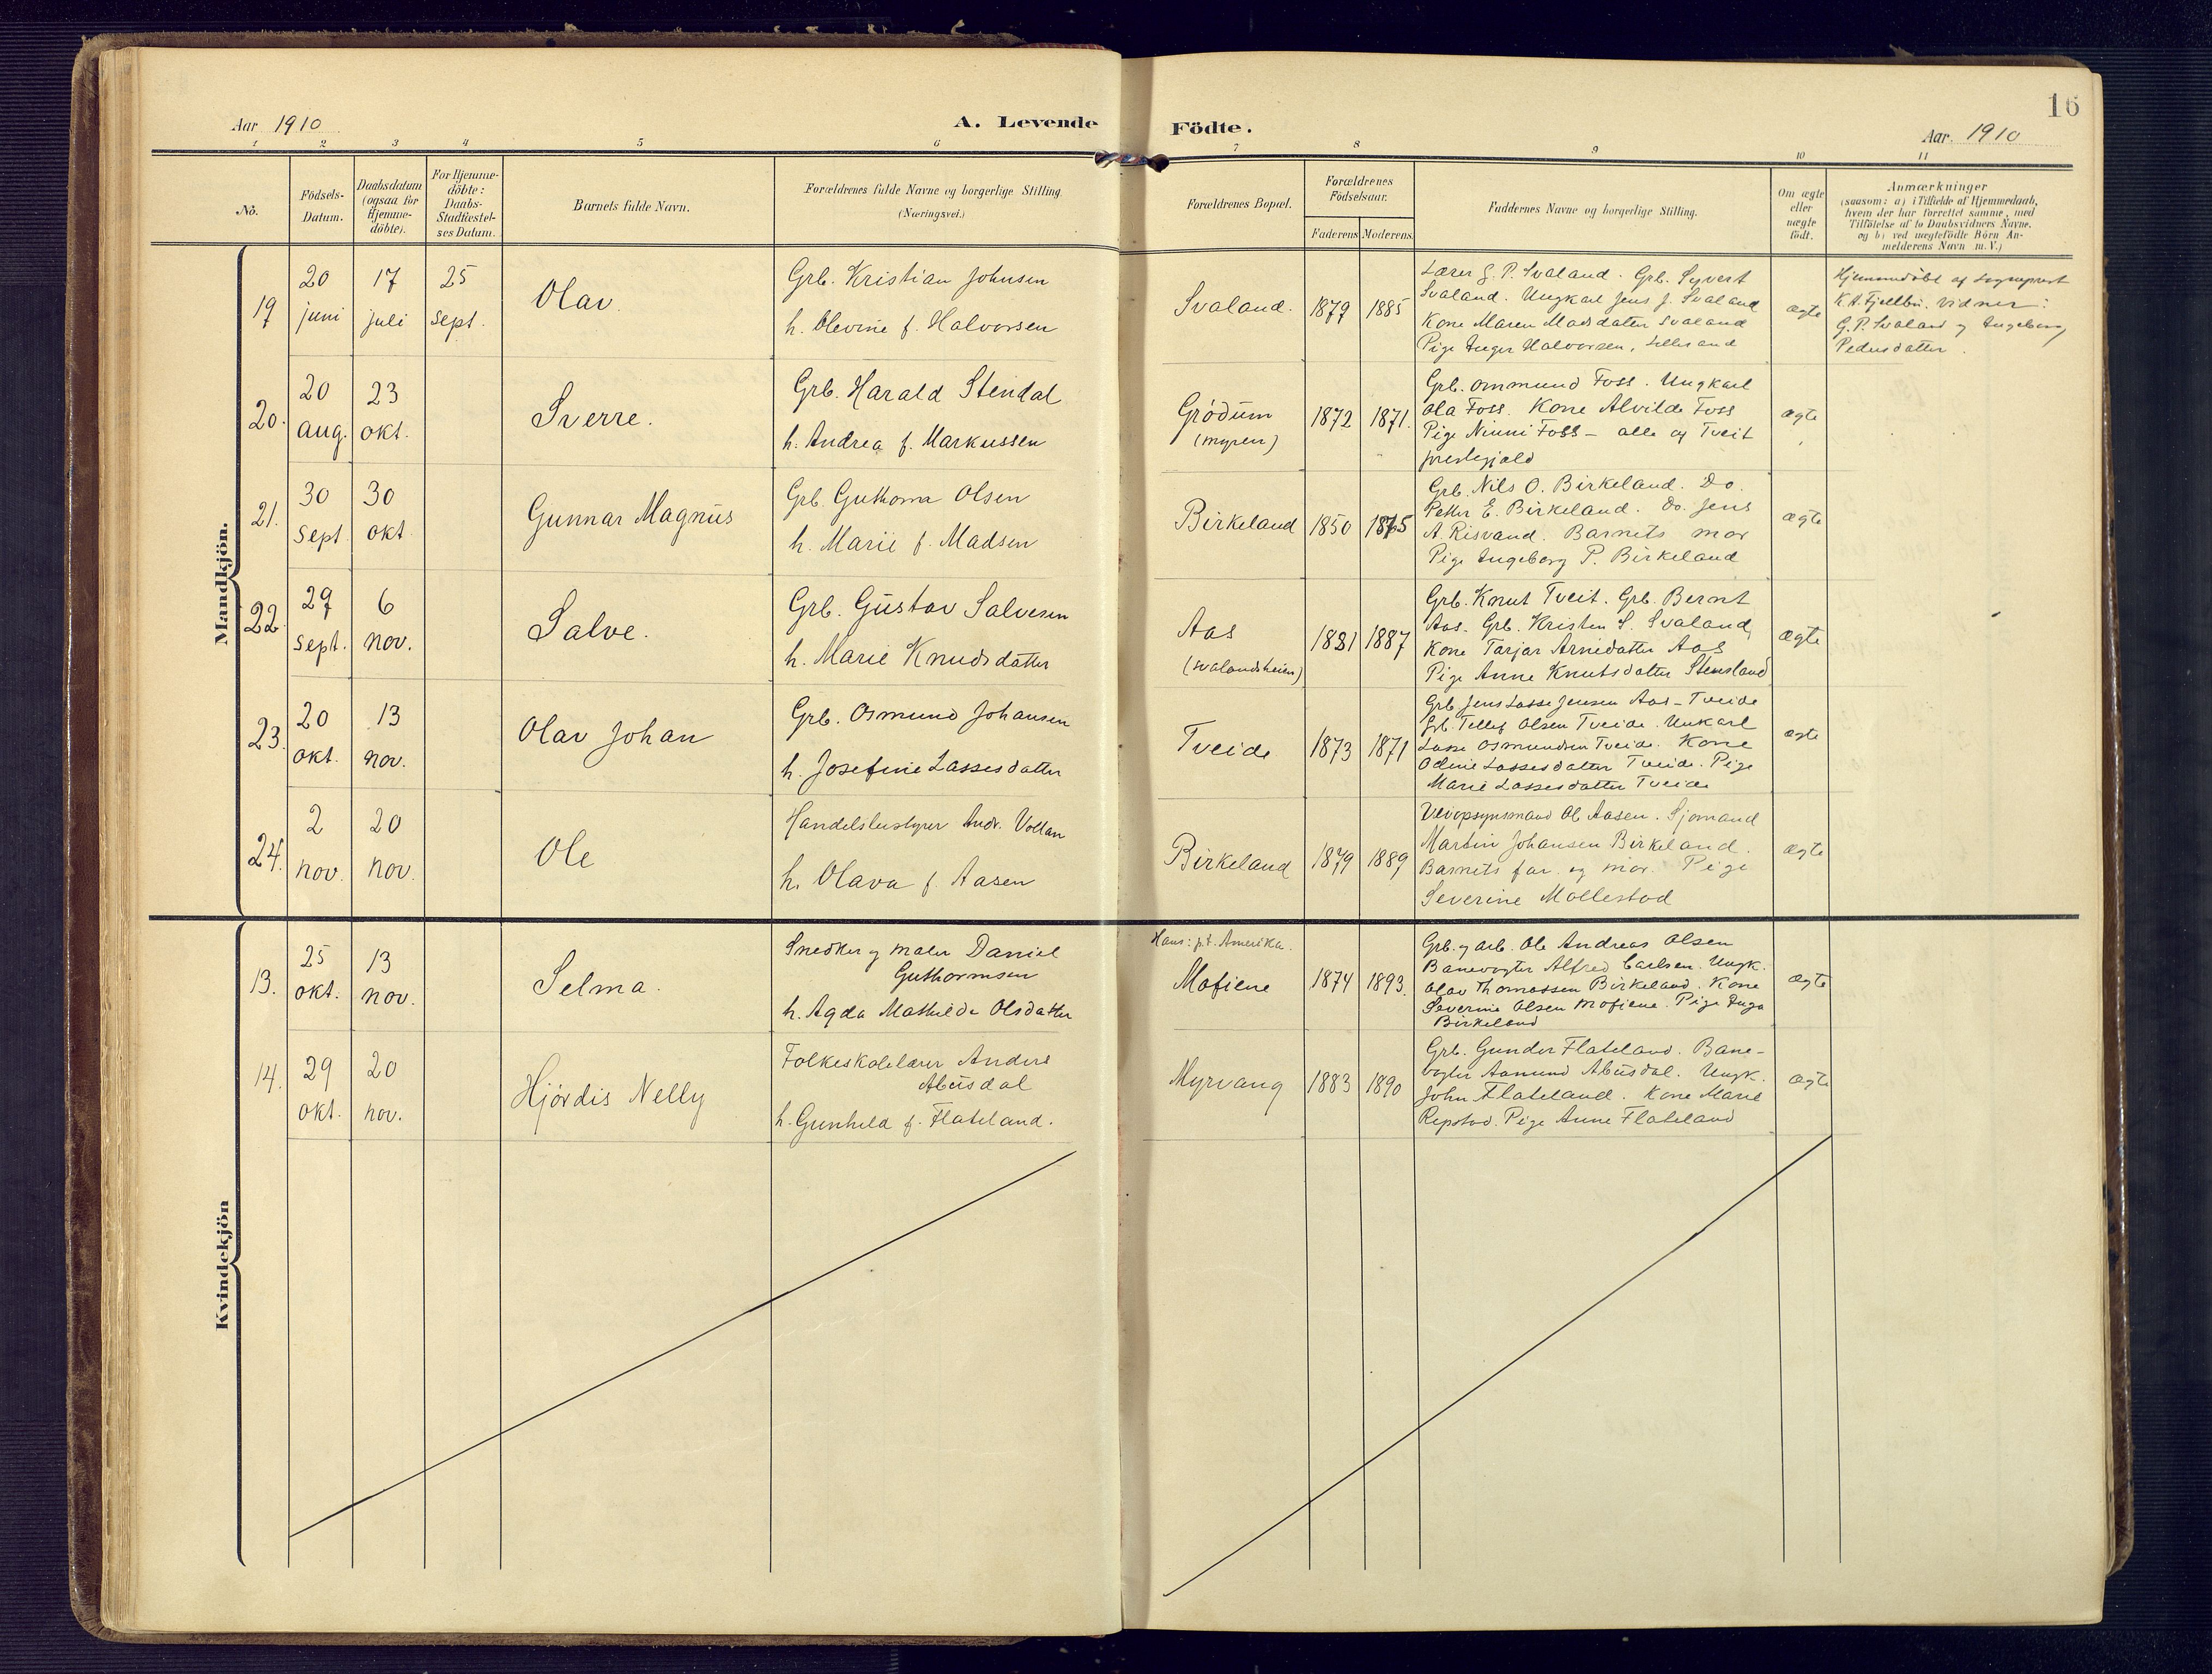 16
Aar 1910
A. Levende Födte.
Aar. 1910
1 2 3 4 5 6 7 8 9 10 11
No.
Födsels-
Datum.
Daabsdatum
(ogsaa for
Hjemme-
döbte).
For Hjemme-
döbte:
Daabs-
Stadfæstel-
ses Datum.
Barnets fulde Navn.
Forældrenes fulde Navne og borgerlige Stilling
(Næringsvei.)
Forældrenes Bopæl.
Forældrenes
Födselsaar.
Faderens Moderens.
Faddernes Navne og borgerlige Stilling.
Om ægte
eller
uægte
födt.
Anmærkninger
(saasom: a) i Tilfælde af Hjemmedaab,
hvem der har forrettet samme, med
Tilföielse af to Daabsvidners Navne.
og b) ved uægtefödte Börn An-
melderens Navn m. V.)
Mandkjön.
19
20
juni
17
juli
25
sept.
Olav.
Grb. Kristian Johnsen
h. Olevine f. Halvorsen
Svaland.
1879
1885
Lærer G. P. Svaland. Grb. Syvert
Svaland. Ungkarl Jens J. Svaland
Kone Maren Madsdatter Svaland
Pige Inger Halvorsen, Lillesand
ægte
Hjemmedöbt af sogneprest
K. A. Fjellbu. Vidner:
G. P. Svaland og Ingeborg
Pedersdatter.
20.
20
aug.
23
okt.
Sverre.
Grb. Harald Stendal
h. Andrea f. Markussen
Grödum
(myren)
1872
1871.
Grb. Ommund Foss. Ungkarl
Ola Foss. Kone Alvilde Foss
Pige Ninni Foss - alle af Tveit
prestegjeld
ægte
21.
30
sept
30
okt
Gunnar Magnus
Grb. Guthorm Olsen
h. Marie f. Madsen
Birkeland
1850
1865
Grb. Nils O. Birkeland. Do.
Petter E. Birkeland. Do. Jens
A. Risvand. Barnets mor
Pige Ingeborg P. Birkeland
ægte
22.
29
sept.
6
nov.
Salve.
Grb. Gustav Salvesen
h. Marie Knudsdatter
Aas
(svalandsheien)
1881
1887
Grb. Knut Tveit. Grb. Bernt
Aas. Grb. Kristen S. Svaland,
Kone Tarjar Arnedatter Aas
Pige Anne Knutsdatter Stensland
ægte
23.
20
okt.
13
nov.
Olav Johan
Grb. Osmund Johansen
h. Josefine Lassesdatter
Tveide
1873
1871
Grb. Jens Lasse Jensen Aas - Tveide
Grb. Tellef Olsen Tveide. Unkarl
Lasse Osmundsen Tveide. Kone
Odine Lassesdatter Tveide. Pige
Marie Lassesdatter Tveide
ægte
24.
2
nov.
20
nov.
Ole
Handelsbestyrer Andr. Vollan
h. Olava f. Aasen
Birkeland
1879
1889
Veiopsynsmand Ol. Aasen. Sjömand
Martin Johansen Birkeland.
Barnets far og mor. Pige
Severine Mollestad
ægte
Kvindekjön
13.
25
okt.
13
nov.
Selma.
Snedker og maler Daniel
Guthormsen
h. Agda Mathilde Olsdatter
Hans: p.t. Amerika.
Mofiene
1874
1893.
Grb. og arb. Ole Andreas Olsen
Banevogter Alfred Carlsen. Ungk.
Olav Thomassen Birkeland. Kone
Severine Olsen Mofiene. Pige Inga
Birkeland
ægte
14.
29
okt.
20
nov.
Hjördis Nelly
Folkeskolelærer Anders
Abusdal
h. Gunhild f. Flateland.
Myrvang
1883
1890
Grb. Gunder Flateland. Bane-
vogter Aamund Abusdal. Ungk.
John Flateland. Kone Marie
Repstad. Pige Anne Flateland
ægte